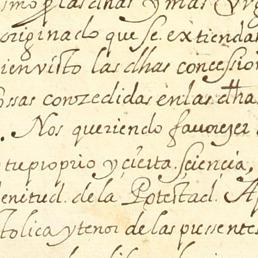 originado que se extiendan
bien visto las dhas concession
cossas conzedidas en las dha
. Nos queriendo favorezer
tu proprio y cierta sciencia,
lenitud de la Potestad Ap
tolica y tenor de las presentes